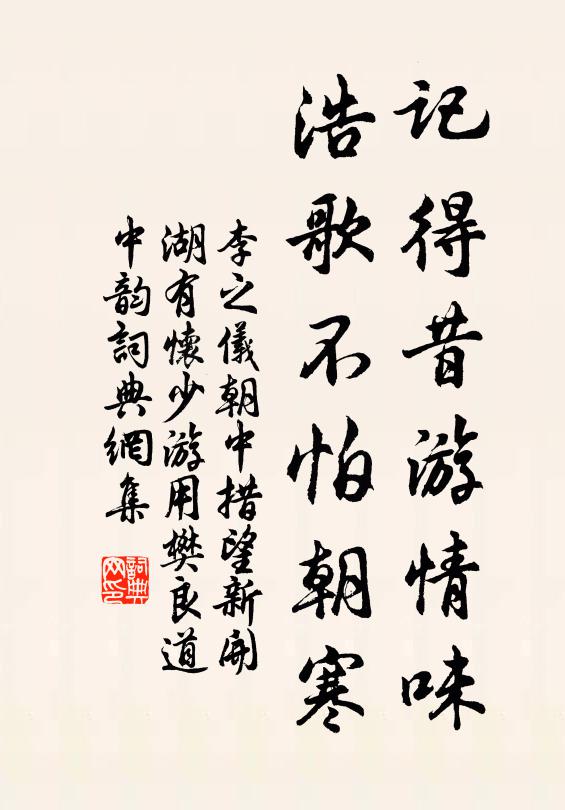 记得昔游情味
浩歌不怕朝寒
李之儀朝中措望新開
湖有懷少游用樊良道
中韵詞典網集
詞典网印